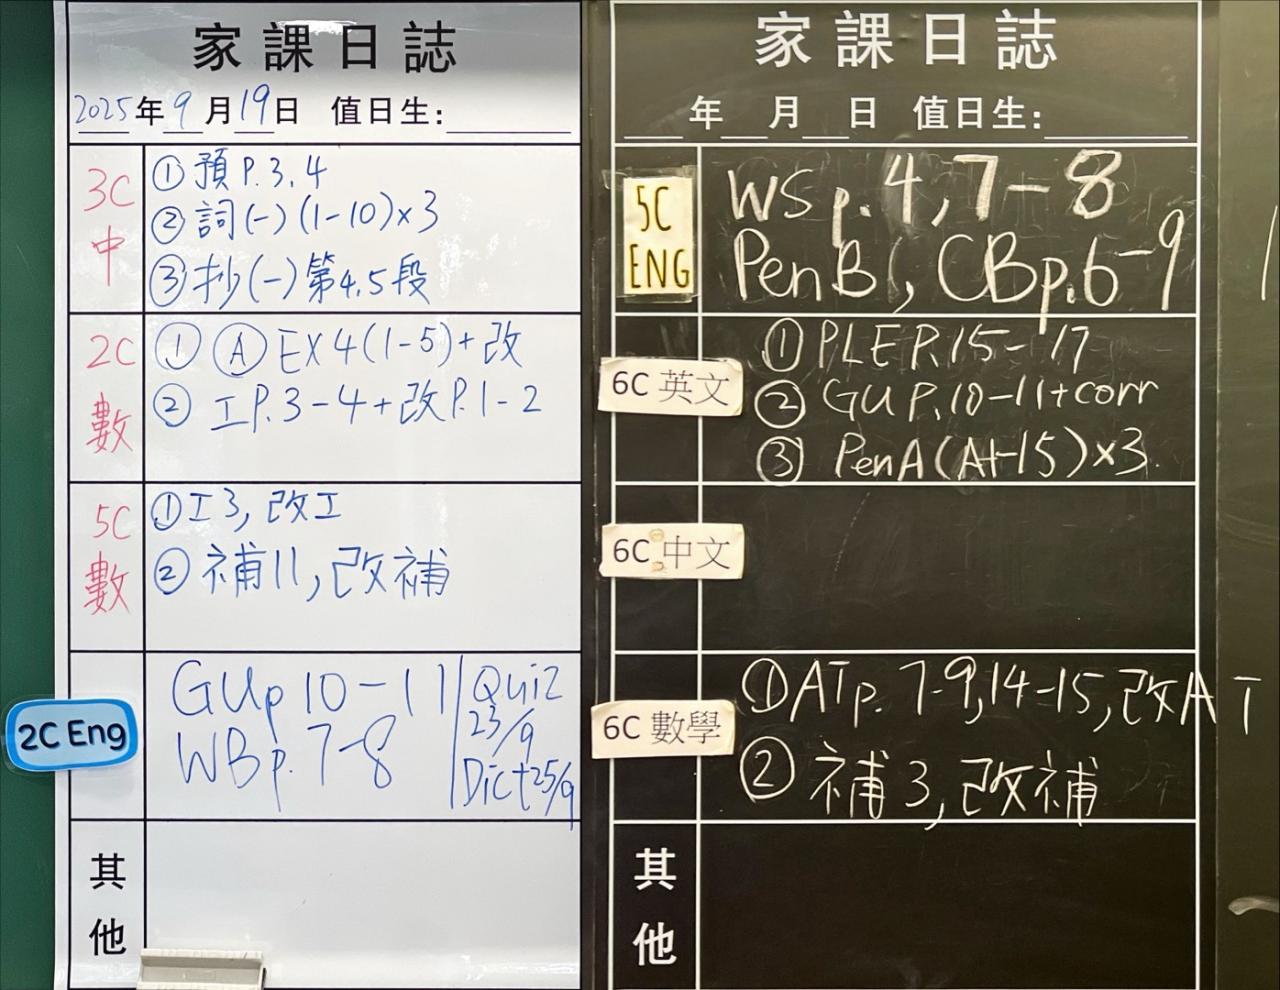 家課日誌
2025年9月19日 值日生:
3C
中
① 預 P.3.4
② 詞(一)(1-10)×3
③ 抄(一)第4.5段
2C
數
① Ⓐ EX 4(1-5)+改
② 工P.3-4+改P.1-2
5C
數
① 工3, 改工
② 補11, 改補
2C Eng
GUp 10-11
WBp. 7-8
Quiz
23/9
Dict 25/9
其
他
家課日誌
年 月 日 值日生:
5C
ENG
WS p. 4, 7-8
PenB, CBp.6-9
6C 英文
① PLE P.15-17
② GU P.10-11+corr
③ PenA(A+-15)×3
6C 中文
6C 數學
① ATp. 7-9,14-15,改AT
② 補3, 改補
其
他